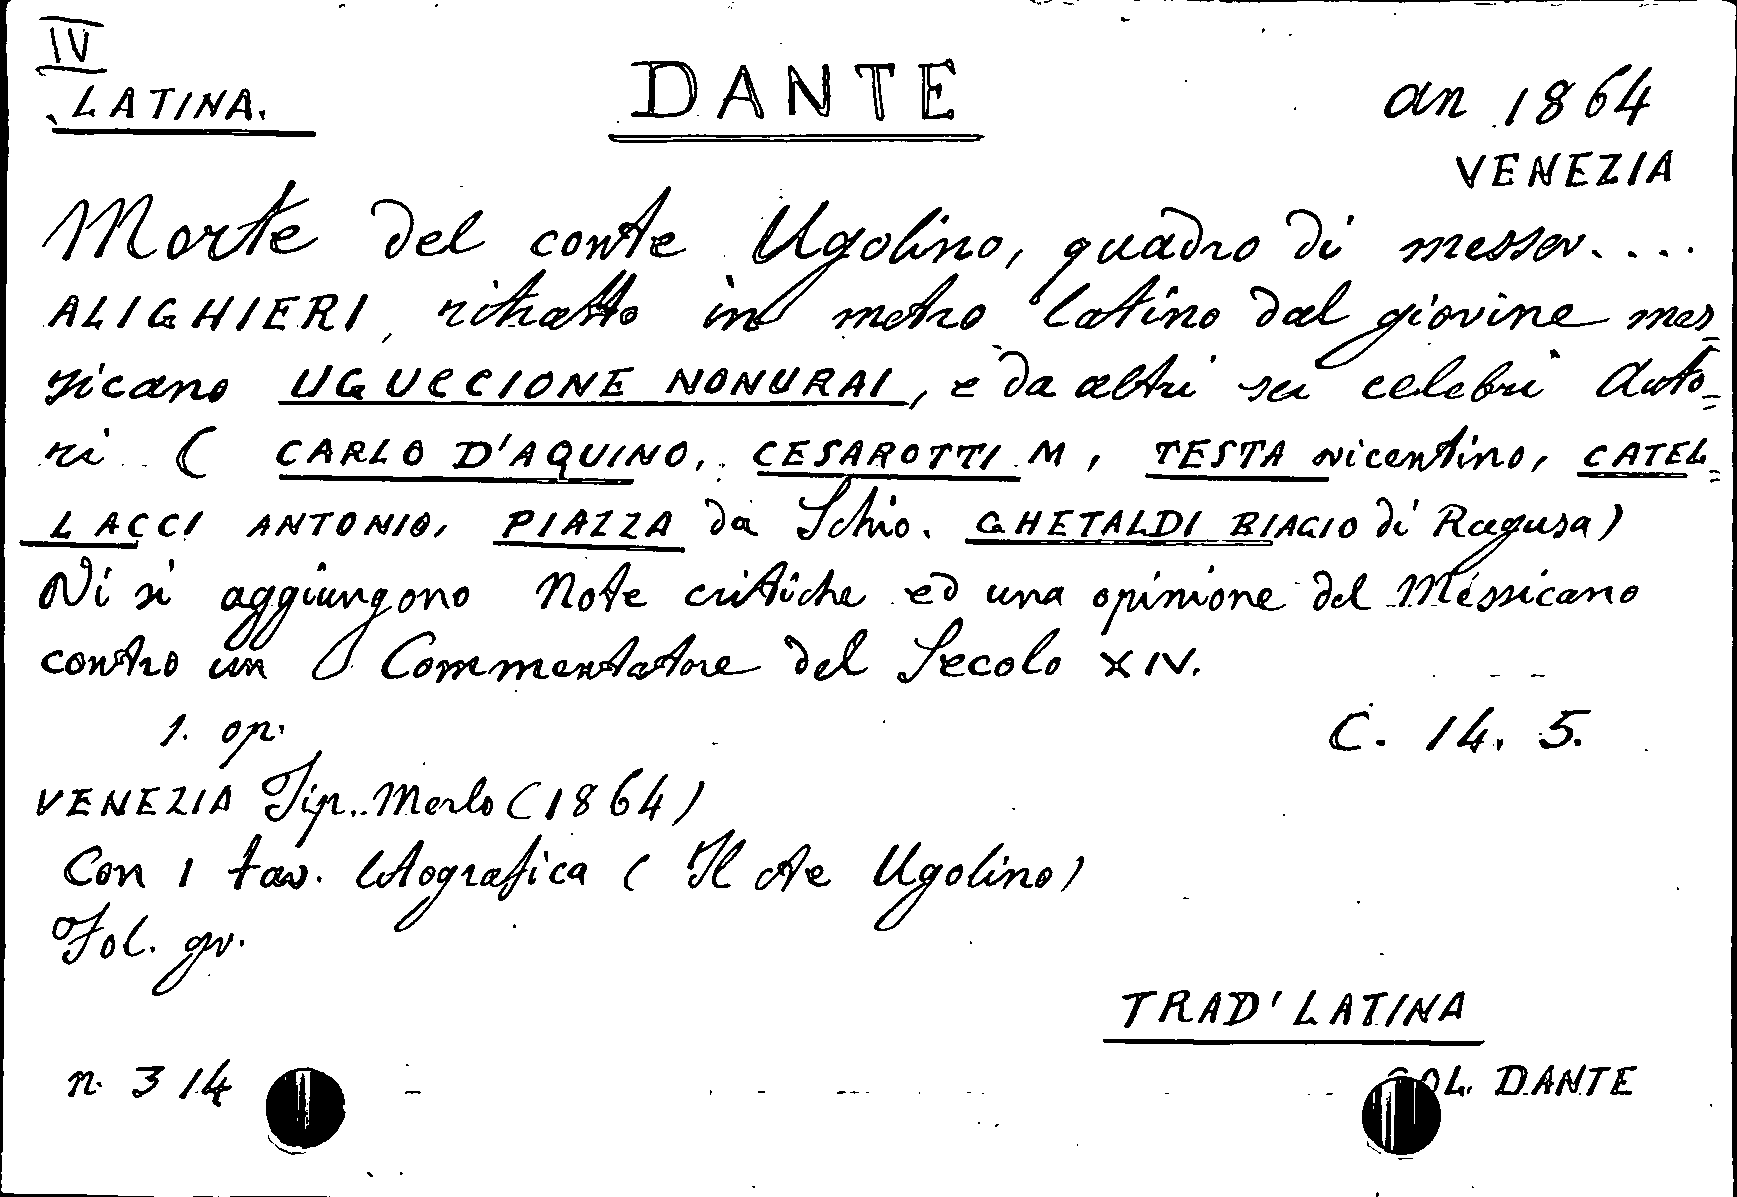 IV
LATINA.
DANTE
an 1864
VENEZIA
Morte del conte Ugolino, quadro di messer....
ALIGHIERI ritratto in metro latino dal giovine mes=
sicano UGUCCIONE NONURAI, e da altri sei celebri Auto=
ri (CARLO D'AQUINO, CESAROTTI M, TESTA vicentino, CATEL=
LACCI ANTONIO, PIAZZA da Schio. GHETALDI BIAGIO di Ragusa)
Vi si aggiungono Note critiche ed una opinione del Messicano
contro un Commentatore del Secolo XIV.
1. op.
C. 14. 5.
VENEZIA Tip. Merlo (1864)
Con 1 tav. litografica (Il cte Ugolino)
Fol. gr.
TRAD' LATINA
n. 314
COL. DANTE